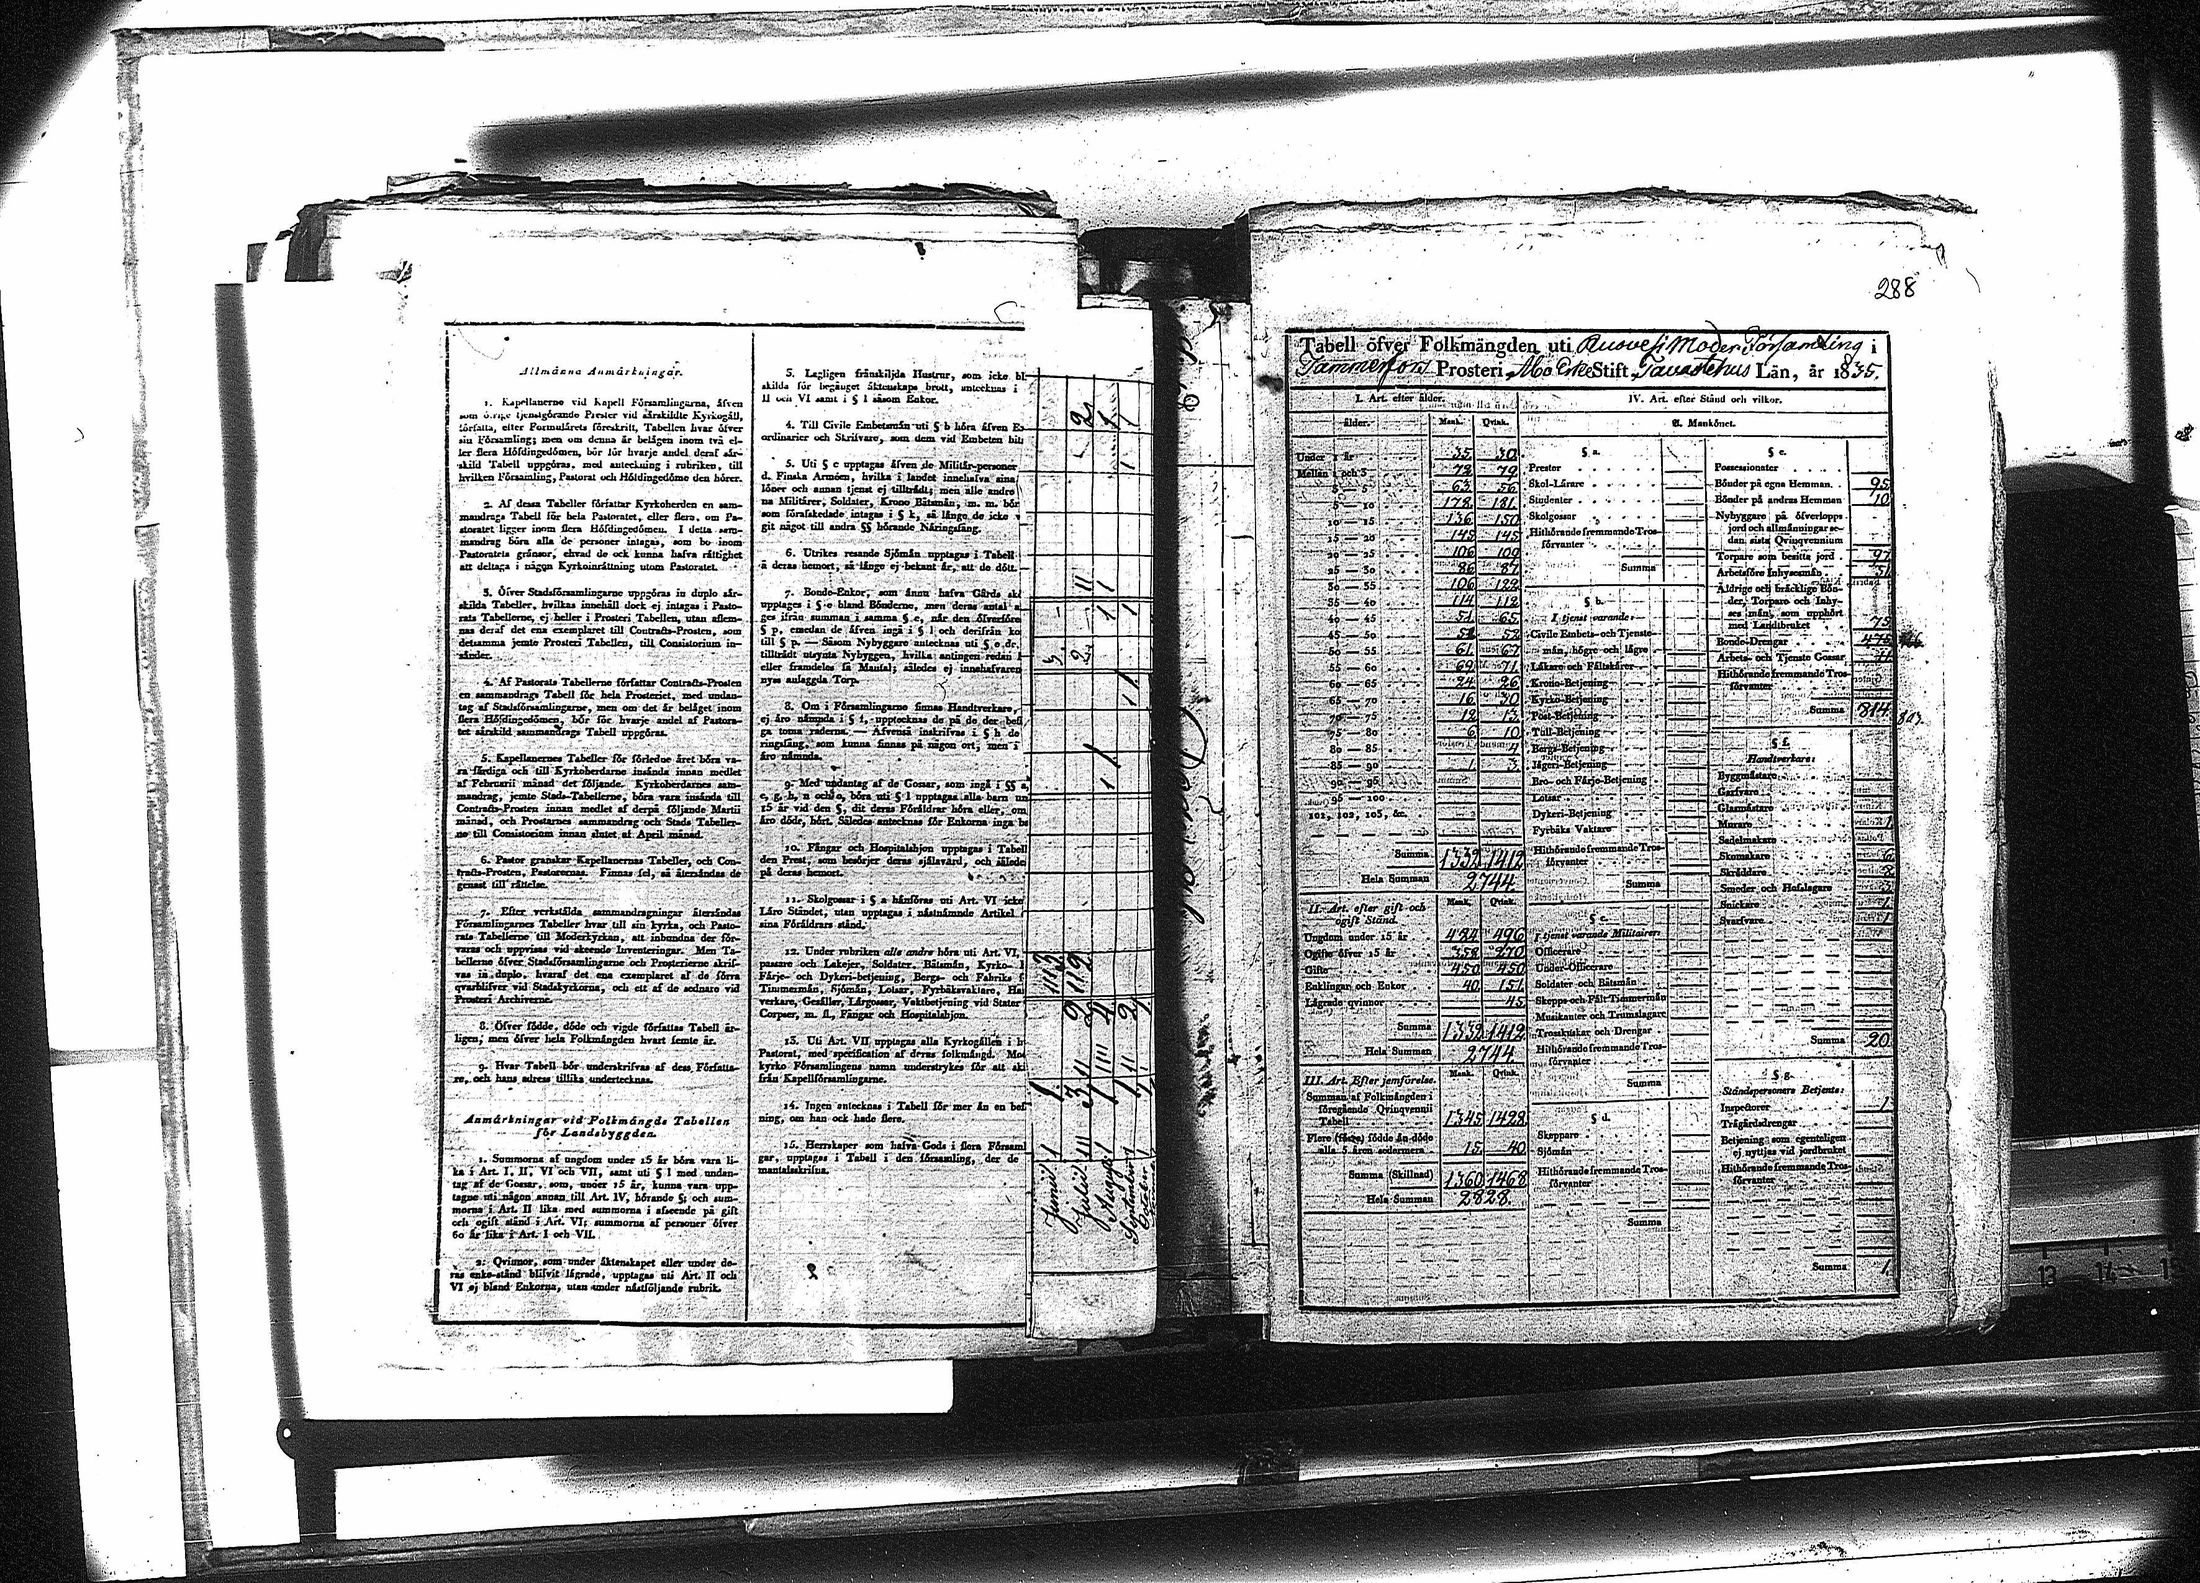 Allmänna Anmärkningar.
1. Kapellanerne vid Kapell Församlingarna, äfven
som öfrige tjenstgörande Prester vid särskildte Kyrkogäll,
författa, efter Formulärets föreskrift, Tabellen hvar öfver
sin Församling; men om denna är belägen inom två el-
ler flera Höfdingedömen, bör för hvarje andel deraf sär-
skild Tabell uppgöras, med anteckning i rubriken, till
hvilken Församling, Pastorat och Höfdingedöme den hörer.
2. Af dessa Tabeller författar Kyrkoherden en sam-
mandrags Tabell för hela Pastoratet, eller flera, om Pa-
storatet ligger inom flera Höfdingedömen. I detta sam-
mandrag böra alla de personer intagas, som bo inom
Pastoratets gränsor, ehvad de ock kunna hafva rättighet
att deltaga i någon Kyrkoinrättning utom Pastoratet.
3. Öfver Stadsförsamlingarne uppgöras in duplo sär-
skilda Tabeller, hvilkas innehåll dock ej intagas i Pasto-
rats Tabellerne, ej heller i Prosteri Tabellen, utan aflem-
nas deraf det ena exemplaret till Contracts-Prosten, som
detsamma jemte Prosteri Tabellen, till Consistorium in-
sänder.
4. Af Pastorats Tabellerne författar Contracts-Prosten
en sammandrags Tabell för hela Prosteriet, med undan-
tag af Stadsförsamlingarne, men om det är beläget inom
flera Höfdingedömen, bör för hvarje andel af Pastora-
tet särskild sammandrags Tabell uppgöras.
5. Kapellanernes Tabeller för förledne året böra va-
ra färdiga och till Kyrkoherdarne insända innan medlet
af Februarii månad det följande. Kyrkoherdarnes sam-
mandrag, jemte Stads-Tabellerne, böra vara insända till
Contracts-Prosten innan medlet af derpå följande Martii
månad, och Prostarnes sammandrag och Stads Tabeller-
ne till Consistorium innan slutet af April månad.
6. Pastor granskar Kapellanernas Tabeller, och Con-
tracts-Prosten, Pastorernas. Finnas fel, så återsändas de
genast till rättelse.
7. Efter verkställda sammandragningar återsändas
Församlingarnes Tabeller hvar till sin kyrka, och Pasto-
rats Tabellerne till Moderkyrkan, att inbundna der för-
varas och uppvisas vid skeende Inventeringar. Men Ta-
bellerne öfver Stadsförsamlingarne och Prosterierne skrif-
vas in duplo, hvaraf det ena exemplaret af de förra
qvarblifver vid Stadskyrkorna, och ett af de sednare vid
Prosteri Archiverne.
8. Öfver födde, döde och vigde författas Tabell år-
ligen, men öfver hela Folkmängden hvart femte år.
9. Hvar Tabell bör underskrifvas af dess Författa-
re, och hans adress tillika undertecknas.
Anmärkningar vid Folkmängds Tabellen
för Landsbyggden.
1. Summorna af ungdom under 15 år böra vara li-
ka i Art. I, II, VI och VII, samt uti § l med undan-
tag af de Gossar, som, under 15 år, kunna vara upp-
tagne uti någon annan till Art. IV, hörande §; och sum-
morna i Art. II lika med summorna i afseende på gift
och ogift stånd i Art. VI; summorna af personer öfver
60 år lika i Art. I och VII.
2. Qvinnor, som under äktenskapet eller under de-
ras enke-stånd blifvit lägrade, upptagas uti Art. II och
VI ej bland Enkorna, utan under nästföljande rubrik.
3. Lagligen frånskiljda Hustrur, som icke bl
skilda för begånget äktenskaps brott, antecknas i
II och VI samt i § l såsom Enkor.
4. Till Civile Embetsmän uti § b höra äfven Ex
ordinarier och Skrifvare, som dem vid Embeten bitr
5. Uti § c upptagas äfven de Militär-personer
d. Finska Arméen, hvilka i landet innehafva sina
löner och annan tjenst ej tillträdt; men alle andre
na Militärer, Soldater, Krono Båtsmän, m. m. bör
som förafskedade intagas i § k, så länge de icke
git något till andra §§ hörande Näringsfång.
6. Utrikes resande Sjömän upptagas i Tabell
å deras hemort, så länge ej bekant är, att de dödt.
7. Bonde-Enkor, som ännu hafva Gårds skö
upptages i § e bland Bönderne, men deras antal a
ges ifrån summan i samma § e, när den öfverföres
§ p, emedan de äfven ingå i § l och derifrån ko
till § p. — Såsom Nybyggare antecknas uti § e de,
tillträdt utsynta Nybyggen, hvilka antingen redan
eller framdeles få Mantal; således ej innehafvaren
nyss anlaggda Torp.
8. Om i Församlingarne finnas Handtverkare,
ej äro nämnda i § f, upptecknas de på de der befi
ga toma raderna. — Äfvenså inskrifvas i § h de
ringsfång, som kunna finnas på någon ort, men i
äro nämnda.
9. Med undantag af de Gossar, som ingå i §§ a,
e, g, h, n och o, böra uti § l upptagas alla barn un
15 år vid den §, dit deras Föräldrar höra eller, om
äro döde, hört. Således antecknas för Enkorna inga ba
10. Fångar och Hospitalshjon upptagas i Tabell
den Prest, som besörjer deras själavård, och således
på deras hemort.
11. Skolgossar i § a hänföras uti Art. VI icke
Läro Ståndet, utan upptagas i nästnämnde Artikel
sina Föräldrars stånd.
12. Under rubriken alle andre höra uti Art. VI,
passare och Lakejer, Soldater, Båtsmän, Kyrko-
Färje- och Dykeri-betjening, Bergs- och Fabriks
Timmermän, Sjömän, Lotsar, Fyrbåksvaktare, Han
verkare, Gesäller, Lärgossar, Vaktbetjening vid Stater
Corpser, m. fl., Fångar och Hospitalshjon.
13. Uti Art. VII upptagas alla Kyrkogällen i h
Pastorat, med specification af deras folkmängd. Mo
kyrko Församlingens namn understrykes för att ski
från Kapellförsamlingarne.
14. Ingen antecknas i Tabell för mer än en bef
ning, om han ock hade flere.
15. Herrskaper som hafva Gods i flera Församl
gar, upptagas i Tabell i den församling, der de
mantalsskrifna.
Junii
Julii
Augusti
September
October
288
Tabell öfver Folkmängden uti Ruovesi Moder Församling i
Tammerfors Prosteri Åbo ErkeStift, Tavastehus Län, år 1835.
I. Art. efter ålder.
ålder. Mank. Qvink.
Under 1 år 35 30
Mellan 1 och 3 72 79
3 — 5 63 56
5 — 10 178 181
10 — 15 136 150
15 — 20 145 145
20 — 25 106 109
25 — 30 86 87
30 — 35 106 122
35 — 40 114 112
40 — 45 51 65
45 — 50 52 52
50 — 55 61 67
55 — 60 69 71
60 — 65 24 26
65 — 70 16 30
70 — 75 12 13
75 — 80 6 10
80 — 85 4
85 — 90 1 3
90 — 95
95 — 100
101, 102, 103, &c.
Summa 1332 1412
Hela Summan 2744
II. Art. efter gift och
ogift Stånd. Mank. Qvink.
Ungdom under 15 år 484 496
Ogifte öfver 15 år 358 270
Gifte 450 450
Enklingar och Enkor 40 151
Lägrade qvinnor 45
Summa 1332 1412
Hela Summan 2744
III. Art. Efter jemförelse. Mank. Qvink.
Summan af Folkmängden i
föregående Qvinqvennii
Tabell 1345 1428
Flere (färre) födde än döde
alla 5 åren sedermera 15 40
Summa (Skillnad) 1360 1468
Hela Summan 2828
IV. Art. efter Stånd och vilkor.
A. Mankönet.
§ a.
Prester
Skol-Lärare
Studenter
Skolgossar
Hithörande fremmande Tros-
förvanter
Summa
§ b.
I tjenst varande:
Civile Embets- och Tjenste-
män, högre och lägre
Läkare och Fältskärer
Krono-Betjening
Kyrko-Betjening
Post-Betjening
Tull-Betjening
Bergs-Betjening
Jägeri-Betjening
Bro- och Färjo-Betjening
Lotsar
Dykeri-Betjening
Fyrbåks Vaktare
Hithörande fremmande Tros-
förvanter
Summa
§ c.
I tjenst varande Militairer:
Officerare
Under-Officerare
Soldater och Båtsmän
Skepps- och Fält-Timmermän
Musikanter och Trumslagare
Trosskuskar och Drengar
Hithörande fremmande Tros-
förvanter
Summa
§ d.
Skeppare
Sjömän
Hithörande fremmande Tros-
förvanter
Summa
§ e.
Possessionater
Bönder på egna Hemman 95
Bönder på andras Hemman 10
Nybyggare på öfverlopps
jord och allmänningar se-
dan sista Qvinqvennium
Torpare som besitta jord 97
Arbetsföre Inhysesmän 51
Åldrige och bräcklige Bön-
der, Torpare och Inhy-
ses män, som upphört
med Landtbruket 75
Bonde-Drengar 475
Arbets- och Tjenste Gossar 11
Hithörande fremmande Tros-
förvanter
Summa 814
§ f.
Handtverkare:
Byggmästare
Garfvare
Glasmästare
Murare 1
Sadelmakare
Skomakare 6
Skräddare 8
Smeder och Hofslagare 3
Snickare 1
Svarfvare 1
Summa 20
§ g.
Ståndspersoners Betjente:
Inspector 1
Trägårdsdrengar
Betjening som egenteligen
ej nyttjas vid jordbruket
Hithörande fremmande Tros-
förvanter
Summa 1
13 14